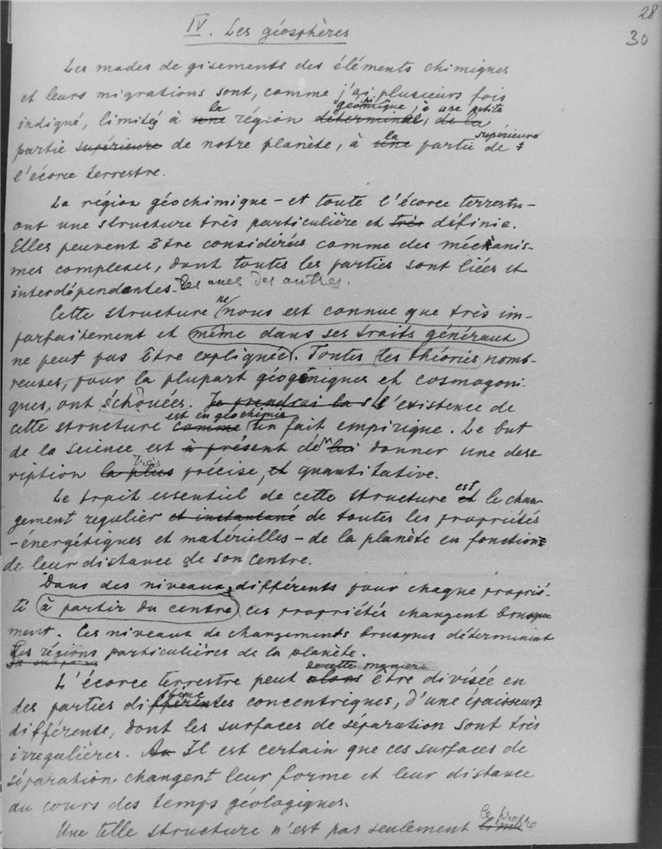 28
30
IV. Les géosphères
Les modes de gisements des éléments chimiques
et leurs migrations sont, comme j'ai plusieurs fois
la géochimique, à une petite
indiqué, limités à une région déterminée, de la
la supérieure
partie supérieure de notre planète, à une partie de
l'écorce terrestre.
La région géochimique - et toute l'écorce terrestre -
ont une structure très particulière et très définie.
Elles peuvent être considérées comme des mécanis-
mes complexes, dont toutes les parties sont liées et
interdépendantes les unes des autres.
Cette structure ne nous est connue que très im-
parfaitement et même dans ses traits généraux
ne peut pas être expliquée. Toutes les théories nomb-
reuses, pour la plupart géogéniques et cosmogoni-
ques, ont échouées. Je prendrai la l'existence de
est en géochimie
cette structure comme un fait empirique. Le but
de la science est à présent de lui donner une des-
très
cription la plus précise, et quantitative.
est
Le trait essentiel de cette structure et le chan-
gement regulier et instantané de toutes les propriétés
- énergétiques et matérielles - de la planète en fonction
de leur distance de son centre.
Dans des niveaux différents pour chaque proprié-
té à partir du centre ces propriétés changent brusque-
ment. Ces niveaux de changements brusques déterminent
les régions particulières de la planète.
de cette manière
L'écorce terrestre peut alors être divisée en
des parties différentes concentriques, d'une épaisseur
différente, dont les surfaces de séparation sont très
irregulières. Il est certain que ces surfaces de
séparation changent leur forme et leur distance
au cours des temps géologiques.
le propre
Une telle structure n'est pas seulement